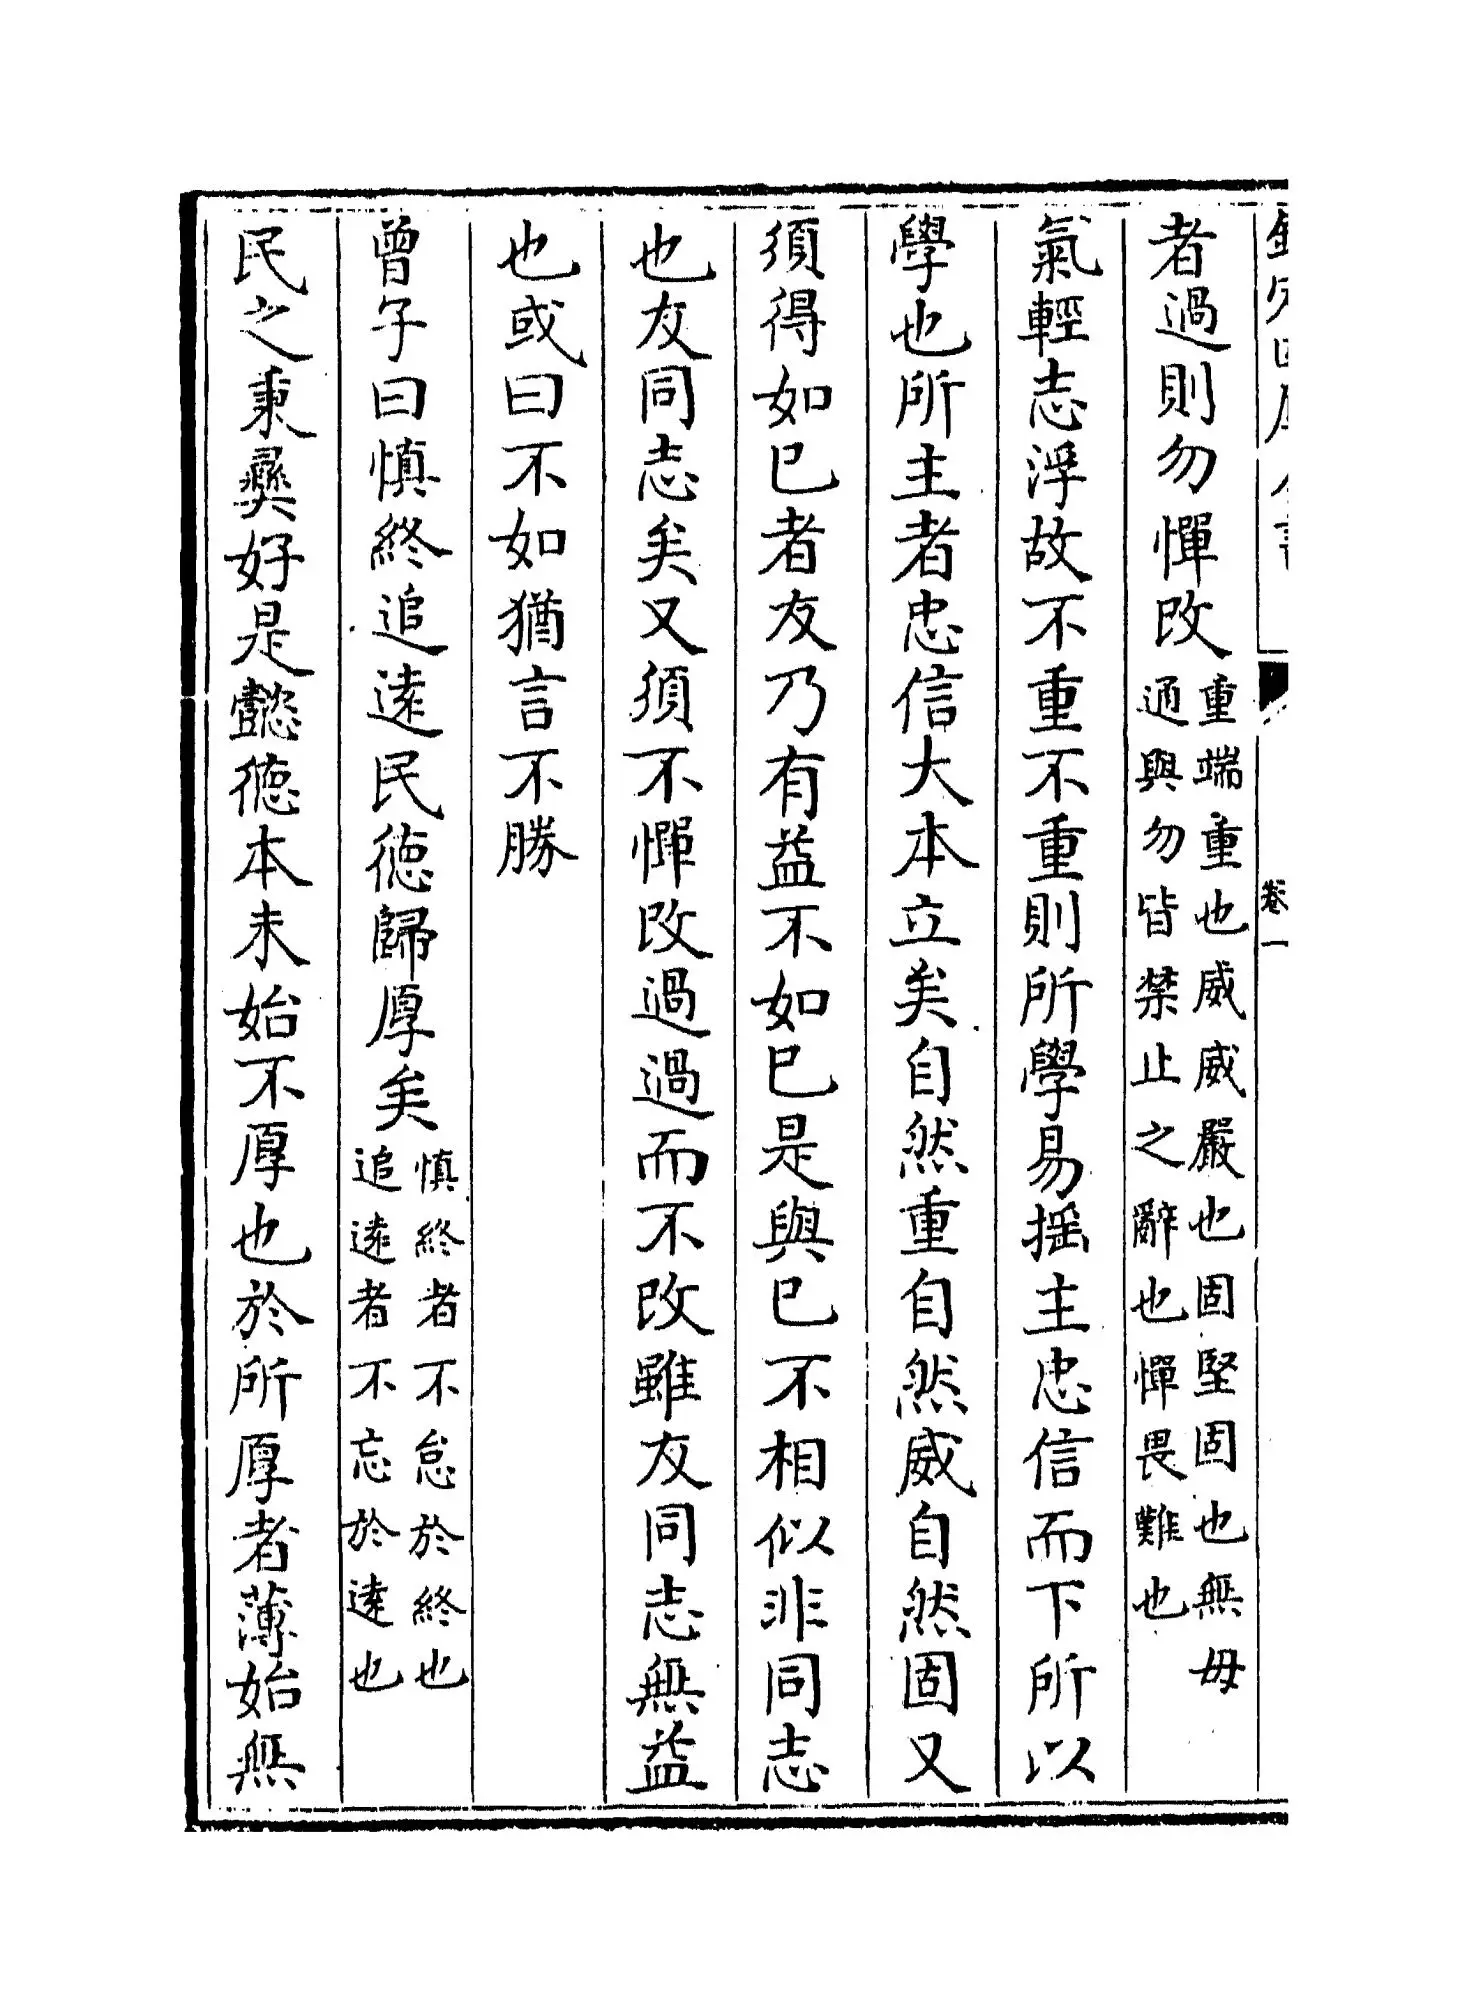 欽定四庫全書
卷一
者過則勿憚改重端重也威威嚴也固堅固也無毋通與勿皆禁止之辭也憚畏難也
氣輕志浮故不重不重則所學易揺主忠信而下所以
學也所主者忠信大本立矣自然重自然威自然固又
須得如已者友乃有益不如已是與已不相似非同志
也友同志矣又須不憚改過過而不改雖友同志無益
也或曰不如猶言不勝
曾子曰慎終追逺民徳歸厚矣慎終者不怠於終也追逺者不忘於逺也
民之秉彛好是懿徳本未始不厚也於所厚者薄始無